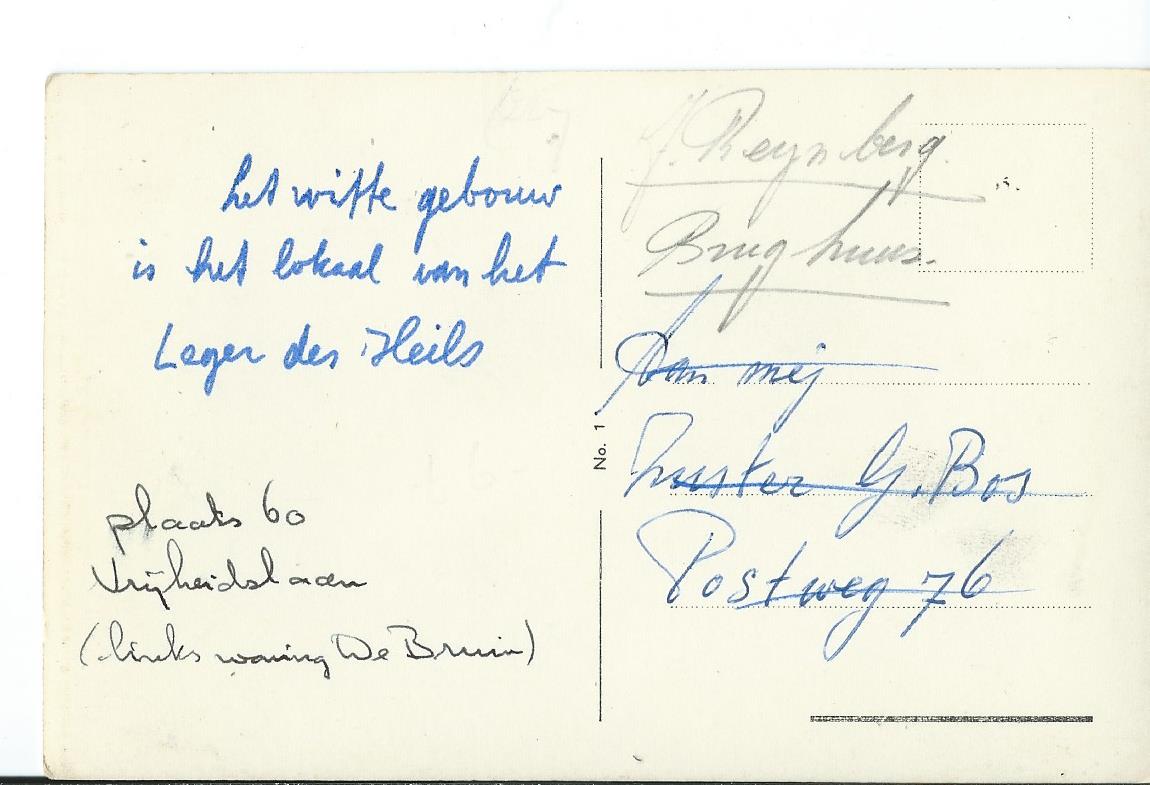 het witte gebouw
is het lokaal van het
Leger des Heils
plaats 60
Vrijheidslaan
(links woning De Bruin)
J. Reynberg.
Brughuus.
No. 1
Aan mej
zuster G. Bos
Postweg 76